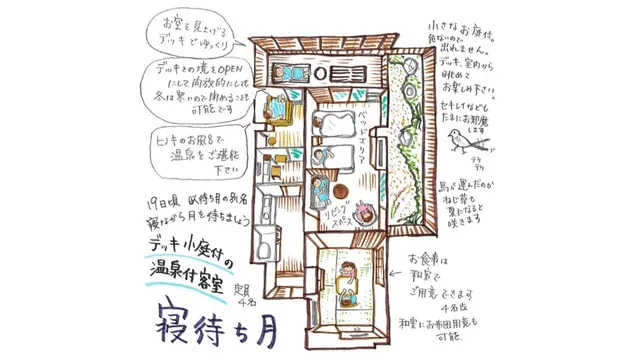 お空を見上げる
デッキでゆっくり
デッキとの境もOPEN
にして開放的にしても
冬は寒いので閉めることも
可能です
ヒノキのお風呂で
温泉をご堪能
下さい
19日頃 臥待ち月の別名
寝ながら月を待ちましょう
デッキ小庭付の
温泉付客室
定員
4名
寝待ち月
ベッドエリア
リビング
スペース
小さなお庭付。
危ないので
出れません。
デッキ、室内から
眺めて
お楽しみ下さい。
セキレイなども
たまにお邪魔
します
テケ
テケ
鳥が運んだのか
ねじ草も
夏になると
咲きます
お食事は
和室で
ご用意できます
4名迄
和室にお布団用意も
可能